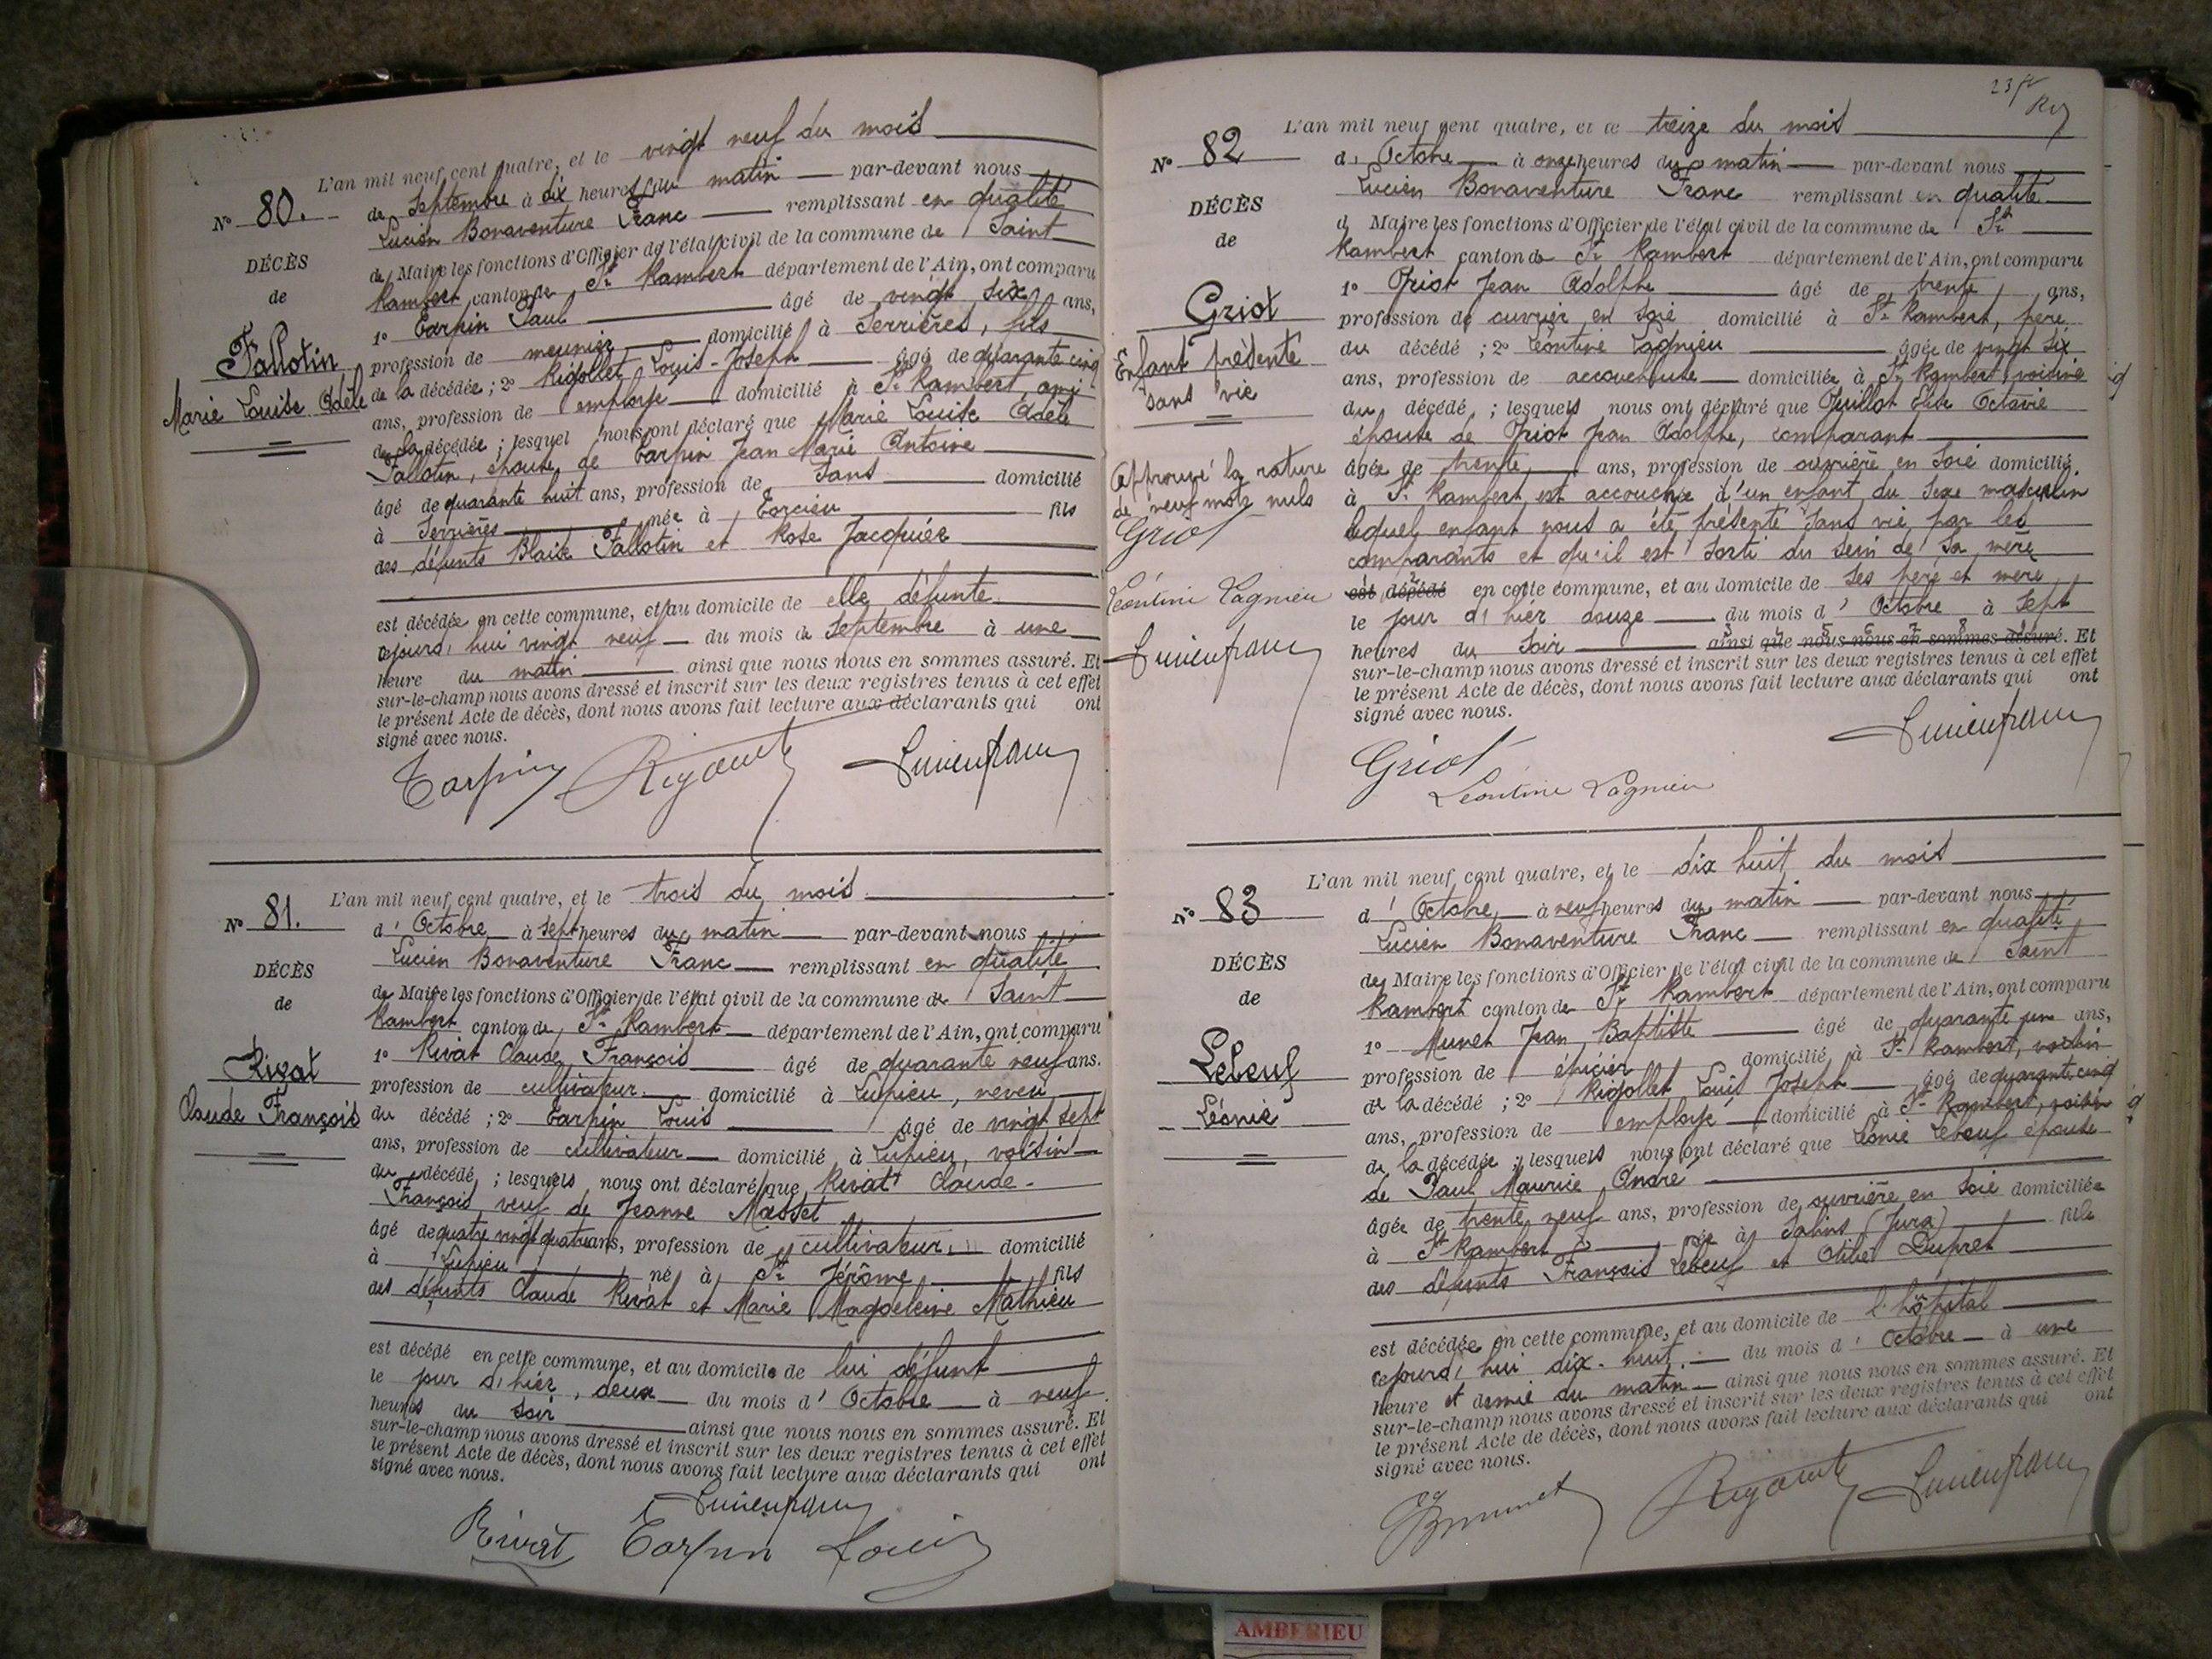 L'an mil neuf cent quatre, et le vingt neuf du mois
N° 80. de Septembre à dix heures du matin par-devant nous
Lucien Bonaventure Franc remplissant en qualité
DÉCÈS
de
de Maire les fonctions d'Officier de l'état civil de la commune de Saint
Rambert canton de St Rambert département de l'Ain, ont comparu
1° Tarpin Paul âgé de vingt six ans,
Fallotin
Marie Louise Adèle
profession de meunier domicilié à Serrières, fils
de la décédée; 2° Rigollet Louis-Joseph âgé de quarante cinq
ans, profession de employé domicilié à St Rambert, ami
de la décédée; lesquel nous ont déclaré que Marie Louise Adèle
Fallotin, épouse de Tarpin Jean Marie Antoine
âgé de quarante huit ans, profession de sans domicilié
à Serrières née à Torcieu fils
des défunts Blaise Fallotin et Rose Jacquier
est décédée en cette commune, et au domicile de elle défunte
cejourd'hui vingt neuf du mois de Septembre à une
heure du matin ainsi que nous nous en sommes assuré. Et
sur-le-champ nous avons dressé et inscrit sur les deux registres tenus à cet effet
le présent Acte de décès, dont nous avons fait lecture aux déclarants qui ont
signé avec nous.
Tarpin Lucien franc
L'an mil neuf cent quatre, et le trois du mois
N° 81. d'Octobre à sept heures du matin par-devant nous
Lucien Bonaventure Franc remplissant en qualité
DÉCÈS
de
de Maire les fonctions d'Officier de l'état civil de la commune de Saint
Rambert canton de St Rambert département de l'Ain, ont comparu
1° Rivat Claude François âgé de quarante neuf ans.
Rivat
Claude François
profession de cultivateur domicilié à Lupieu, neveu
du décédé; 2° Tarpin Louis âgé de vingt sept
ans, profession de cultivateur domicilié à Lupieu, voisin
du décédé; lesquels nous ont déclaré que Rivat Claude-
François, veuf de Jeanne Masset
âgé de quatre vingt quatre ans, profession de cultivateur domicilié
à Lupieu né à St Jérôme fils
des défunts Claude Rivat et Marie Magdeleine Mathieu
est décédé en cette commune, et au domicile de lui défunt
le jour d'hier, deux du mois d'Octobre à neuf
heures du soir ainsi que nous nous en sommes assuré. Et
sur-le-champ nous avons dressé et inscrit sur les deux registres tenus à cet effet
le présent Acte de décès, dont nous avons fait lecture aux déclarants qui ont
signé avec nous.
Lucien franc
Rivat Tarpin Louis
23
L'an mil neuf cent quatre, et le treize du mois
N° 82 d'Octobre à onze heures du matin par-devant nous
Lucien Bonaventure Franc remplissant en qualité
DÉCÈS
de
d Maire les fonctions d'Officier de l'état civil de la commune de St
Rambert canton de St Rambert département de l'Ain, ont comparu
1° Griot Jean Adolphe âgé de trente ans,
Griot
Enfant présenté
sans vie
profession de ouvrier en soie domicilié à St Rambert, père
du décédé; 2° Léontine Lagnieu âgée de vingt six
ans, profession de accoucheuse domiciliée à St Rambert, voisine
du décédé; lesquels nous ont déclaré que Juillot Elise Octavie
épouse de Griot Jean Adolphe, comparant
Approuvé la rature
de neuf mots nuls
Griot
Léontine Lagnieu
Lucien franc
âgée de trente ans, profession de ouvrière en soie domicilié
à St Rambert, est accouchée d'un enfant du sexe masculin
lequel enfant nous a été présenté sans vie par les
comparants et qu'il est sorti du sein de sa mère
est décédé en cette commune, et au domicile de ses père et mère
le jour d'hier douze du mois d'Octobre à sept
heures du soir ainsi que nous nous en sommes assuré. Et
sur-le-champ nous avons dressé et inscrit sur les deux registres tenus à cet effet
le présent Acte de décès, dont nous avons fait lecture aux déclarants qui ont
signé avec nous.
Lucien franc
Griot
Léontine Lagnieu
L'an mil neuf cent quatre, et le dix huit du mois
N° 83 d'Octobre à neuf heures du matin par-devant nous
Lucien Bonaventure Franc remplissant en qualité
DÉCÈS
de
de Maire les fonctions d'Officier de l'état civil de la commune de Saint
Rambert canton de St Rambert département de l'Ain, ont comparu
1° Munet Jean Baptiste âgé de quarante un ans,
Lebeuf
Léonie
profession de épicier domicilié à St Rambert, voisin
de la décédé; 2° Rigollet Louis Joseph âgé de quarante cinq
ans, profession de employé domicilié à St Rambert, voisin
de la décédée; lesquels nous ont déclaré que Léonie Lebeuf épouse
de Paul Maurice André
âgée de trente neuf ans, profession de ouvrière en soie domiciliée
à St Rambert née à Salins (Jura) fille
des défunts François Lebeuf et Dupret
est décédée en cette commune, et au domicile de l'hôpital
cejourd'hui dix-huit du mois d'Octobre à une
heure et demie du matin ainsi que nous nous en sommes assuré. Et
sur-le-champ nous avons dressé et inscrit sur les deux registres tenus à cet effet
le présent Acte de décès, dont nous avons fait lecture aux déclarants qui ont
signé avec nous.
Lucien franc
AMBERIEU